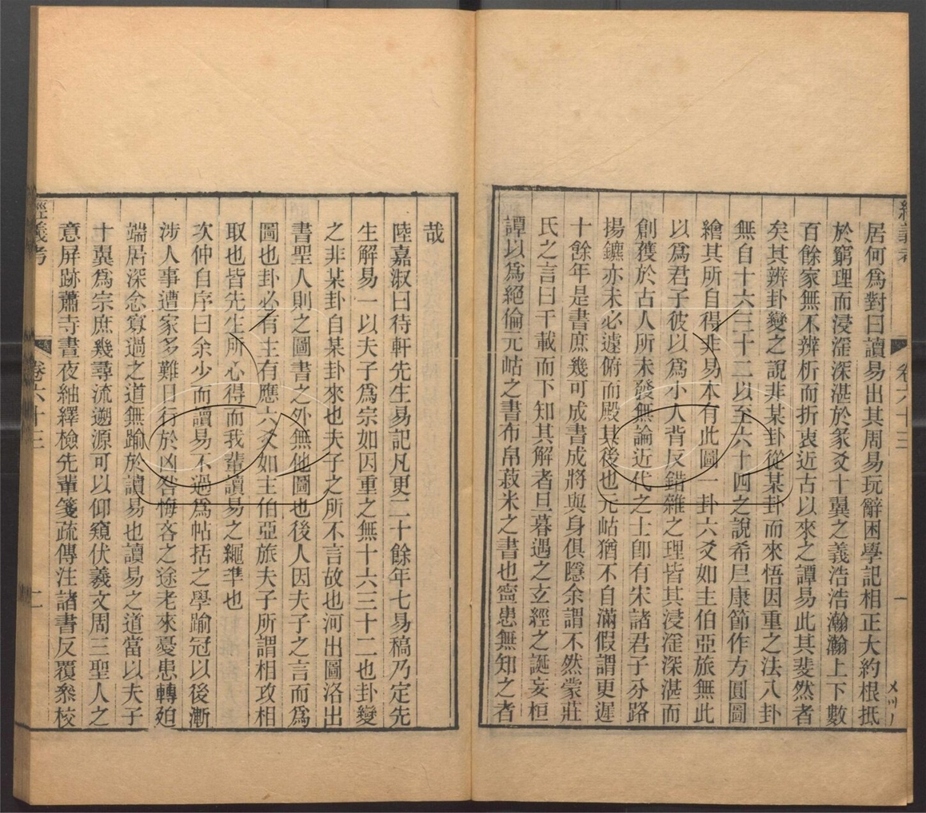 居何爲對曰讀易出其周易玩辭困學記相正大約根抵
於窮理而浸淫深湛於家爻十翼之義浩浩瀚瀚上下數
百餘家無不辨析而折衷近古以來之譚易此其斐然者
矣其辨卦變之說非某卦從某卦而來悟因重之法八卦
無自十六三十二以至六十四之說希𡰥康節作方圓圖
繪其所自得非易本有此圖一卦六爻如主伯亞旅無此
以爲君子彼以爲小人背反錯雜之理皆其浸淫深湛而
創獲於古人所未發無論近代之士卽有宋諸君子分路
揚鑣亦未必遽俯而殿其後也元岵猶不自滿假謂更遲
十餘年是書庶幾可成書成將與身俱隱余謂不然蒙莊
氏之言曰千載而下知其解者旦暮遇之玄經之誕妄桓
譚以爲絕倫元岵之書布帛菽米之書也寧患無知之者
哉
陸嘉淑曰待軒先生易記凡更二十餘年七易稿乃定先
生解易一以夫子爲宗如因重之無十六三十二也卦變
之非某卦自某卦來也夫子之所不言故也河出圖洛出
書聖人則之圖書之外無他圖也後人因夫子之言而爲
圖也卦必有主有應六爻如主伯亞旅夫子所謂相攻相
取也皆先生所心得而我輩讀易之繩準也
次仲自序曰余少而讀易不過爲帖括之學踰冠以後漸
涉人事遭家多難日行於凶咎悔吝之途老來憂患轉廹
端居深念寡過之道無踰於讀易也讀易之道當以夫子
十翼爲宗庶幾尋流遡源可以仰窺伏羲文周三聖人之
意屏跡蕭寺晝夜紬繹檢先輩箋疏傳注諸書反覆叅校
經義考
卷六十三
一
經義考
卷六十三
二